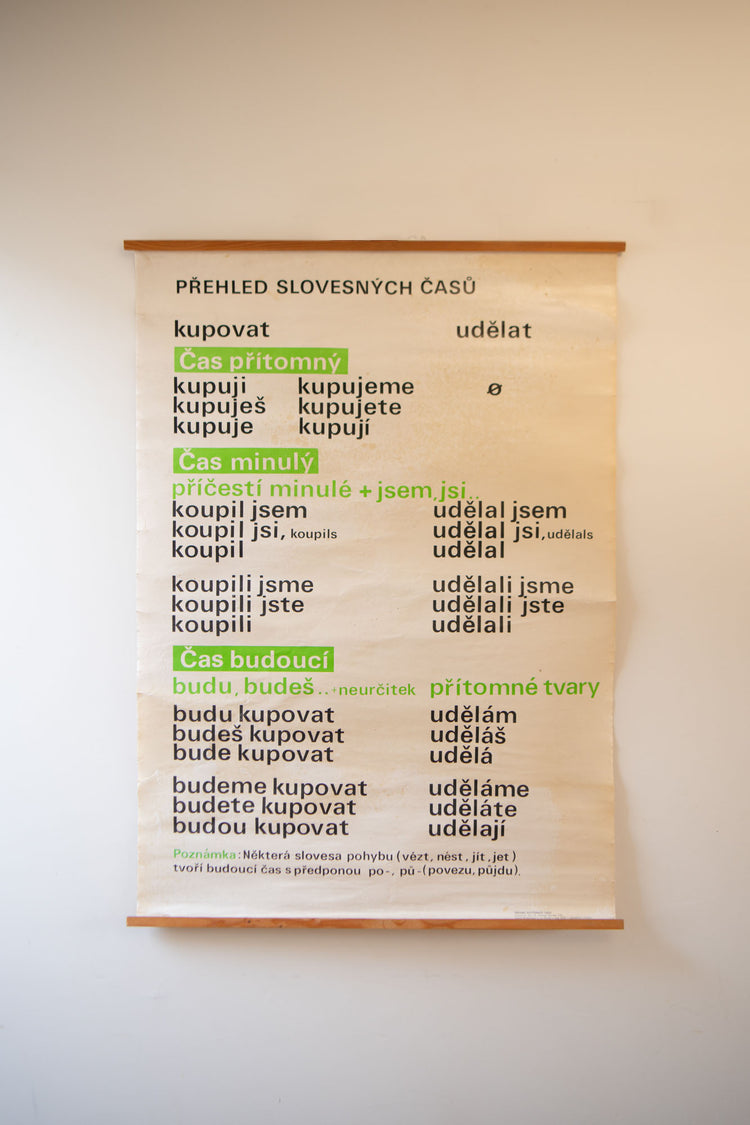 PŘEHLED SLOVESNÝCH ČASŮ
kupovat udělat
Čas přítomný
kupuji kupujeme ø
kupuješ kupujete
kupuje kupují
Čas minulý
příčestí minulé + jsem, jsi..
koupil jsem udělal jsem
koupil jsi, koupils udělal jsi, udělals
koupil udělal
koupili jsme udělali jsme
koupili jste udělali jste
koupili udělali
Čas budoucí
budu, budeš..+neurčitek přítomné tvary
budu kupovat udělám
budeš kupovat uděláš
bude kupovat udělá
budeme kupovat uděláme
budete kupovat uděláte
budou kupovat udělají
Poznámka: Některá slovesa pohybu (vézt, nést, jít, jet)
tvoří budoucí čas s předponou po-, pů-(povezu, půjdu).